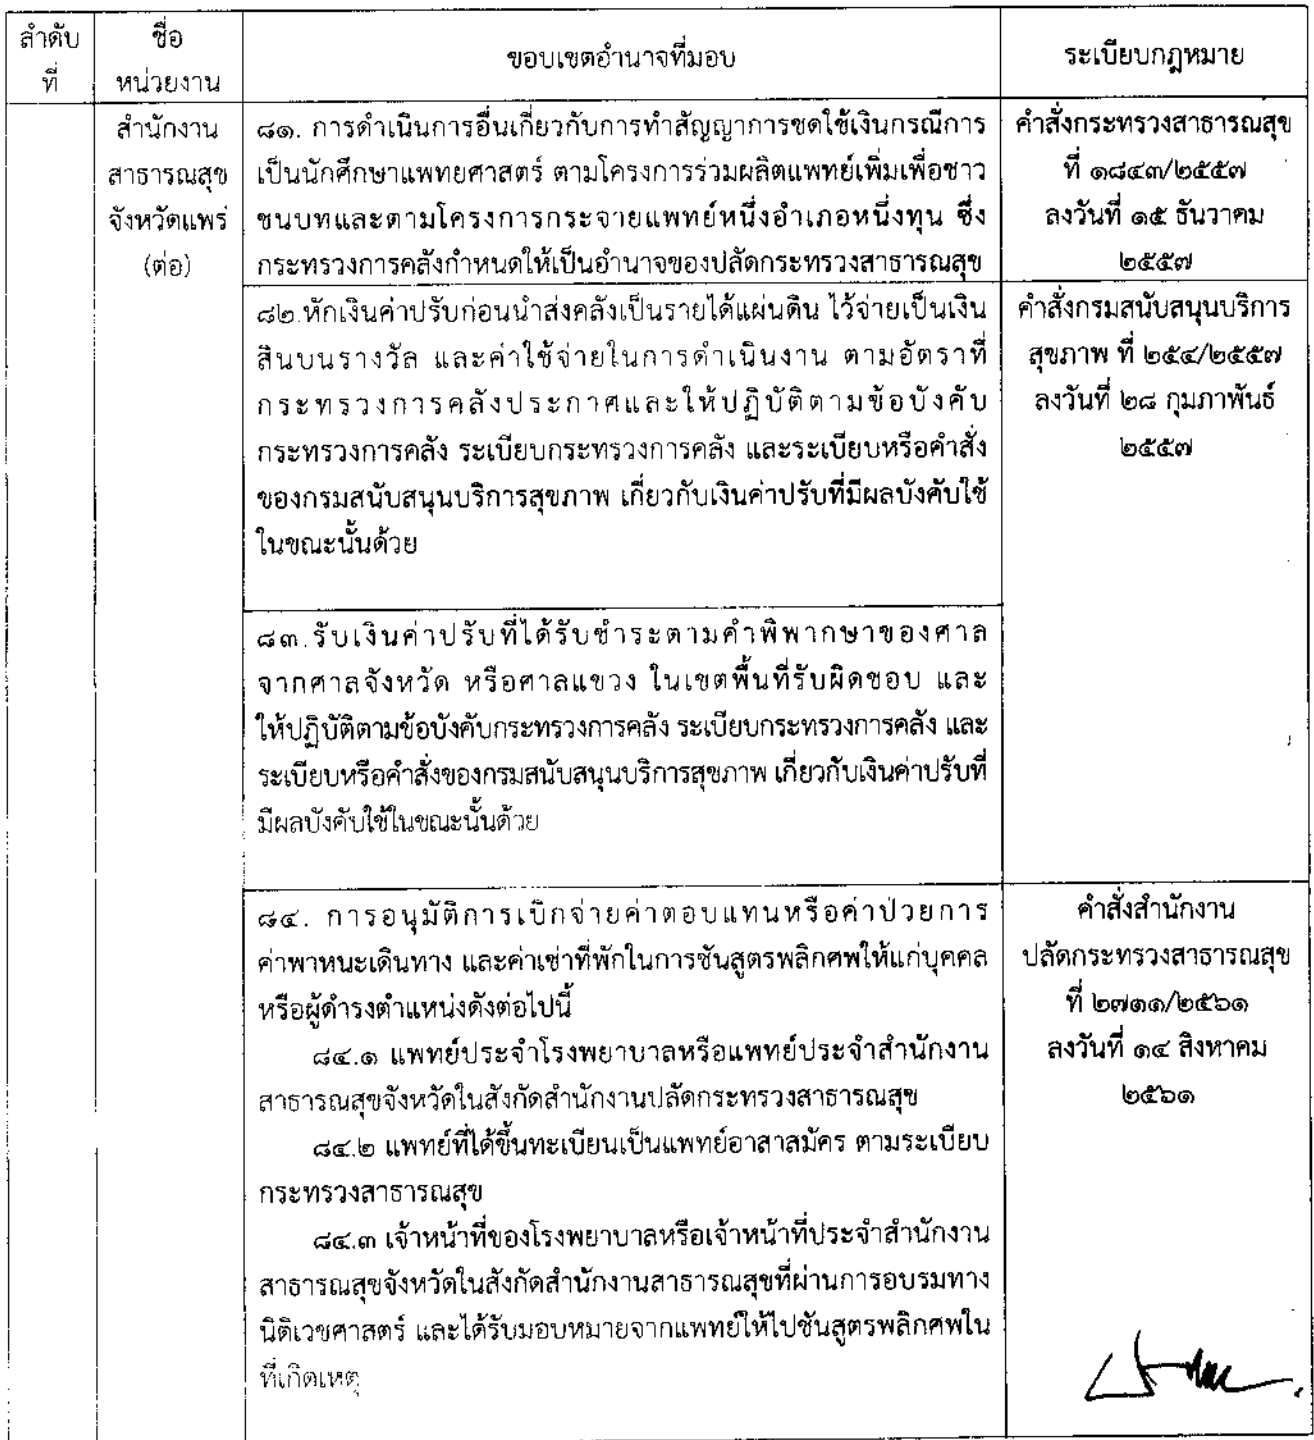 ลำดับ
ที่
ชื่อ
หน่วยงาน
ขอบเขตอำนาจที่มอบ
ระเบียบกฎหมาย
สำนักงาน
สาธารณสุข
จังหวัดแพร่
(ต่อ)
๘๑. การดำเนินการอื่นเกี่ยวกับการทำสัญญาการชดใช้เงินกรณีการ
เป็นนักศึกษาแพทยศาสตร์ ตามโครงการร่วมผลิตแพทย์เพิ่มเพื่อชาว
ชนบทและตามโครงการกระจายแพทย์หนึ่งอำเภอหนึ่งทุน ซึ่ง
กระทรวงการคลังกำหนดให้เป็นอำนาจของปลัดกระทรวงสาธารณสุข
คำสั่งกระทรวงสาธารณสุข
ที่ ๑๘๔๓/๒๕๕๗
ลงวันที่ ๑๕ ธันวาคม
๒๕๕๗
๘๒.หักเงินค่าปรับก่อนนำส่งคลังเป็นรายได้แผ่นดิน ไว้จ่ายเป็นเงิน
สินบนรางวัล และค่าใช้จ่ายในการดำเนินงาน ตามอัตราที่
กระทรวงการคลังประกาศและให้ปฏิบัติตามข้อบังคับ
กระทรวงการคลัง ระเบียบกระทรวงการคลัง และระเบียบหรือคำสั่ง
ของกรมสนับสนุนบริการสุขภาพ เกี่ยวกับเงินค่าปรับที่มีผลบังคับใช้
ในขณะนั้นด้วย
คำสั่งกรมสนับสนุนบริการ
สุขภาพ ที่ ๒๕๔/๒๕๕๗
ลงวันที่ ๒๘ กุมภาพันธ์
๒๕๕๗
๘๓.รับเงินค่าปรับที่ได้รับชำระตามคำพิพากษาของศาล
จากศาลจังหวัด หรือศาลแขวง ในเขตพื้นที่รับผิดชอบ และ
ให้ปฏิบัติตามข้อบังคับกระทรวงการคลัง ระเบียบกระทรวงการคลัง และ
ระเบียบหรือคำสั่งของกรมสนับสนุนบริการสุขภาพ เกี่ยวกับเงินค่าปรับที่
มีผลบังคับใช้ในขณะนั้นด้วย
๘๔. การอนุมัติการเบิกจ่ายค่าตอบแทนหรือค่าป่วยการ
ค่าพาหนะเดินทาง และค่าเช่าที่พักในการชันสูตรพลิกศพให้แก่บุคคล
หรือผู้ดำรงตำแหน่งดังต่อไปนี้
๘๔.๑ แพทย์ประจำโรงพยาบาลหรือแพทย์ประจำสำนักงาน
สาธารณสุขจังหวัดในสังกัดสำนักงานปลัดกระทรวงสาธารณสุข
๘๔.๒ แพทย์ที่ได้ขึ้นทะเบียนเป็นแพทย์อาสาสมัคร ตามระเบียบ
กระทรวงสาธารณสุข
๘๔.๓ เจ้าหน้าที่ของโรงพยาบาลหรือเจ้าหน้าที่ประจำสำนักงาน
สาธารณสุขจังหวัดในสังกัดสำนักงานสาธารณสุขที่ผ่านการอบรมทาง
นิติเวชศาสตร์ และได้รับมอบหมายจากแพทย์ให้ไปชันสูตรพลิกศพใน
ที่เกิดเหตุ
คำสั่งสำนักงาน
ปลัดกระทรวงสาธารณสุข
ที่ ๒๗๑๑/๒๕๖๑
ลงวันที่ ๑๔ สิงหาคม
๒๕๖๑